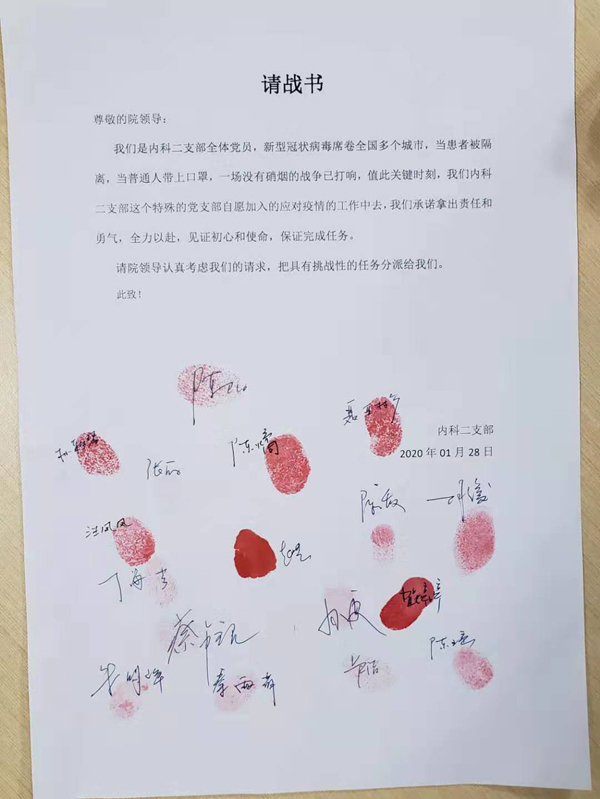 请战书
尊敬的院领导：
我们是内科二支部全体党员，新型冠状病毒席卷全国多个城市，当患者被隔
离，当普通人带上口罩，一场没有硝烟的战争已打响，值此关键时刻，我们内科
二支部这个特殊的党支部自愿加入的应对疫情的工作中去，我们承诺拿出责任和
勇气，全力以赴，见证初心和使命，保证完成任务。
请院领导认真考虑我们的请求，把具有挑战性的任务分派给我们。
此致！
内科二支部
2020 年 01 月 28 日
汪凤凤
朱明峰